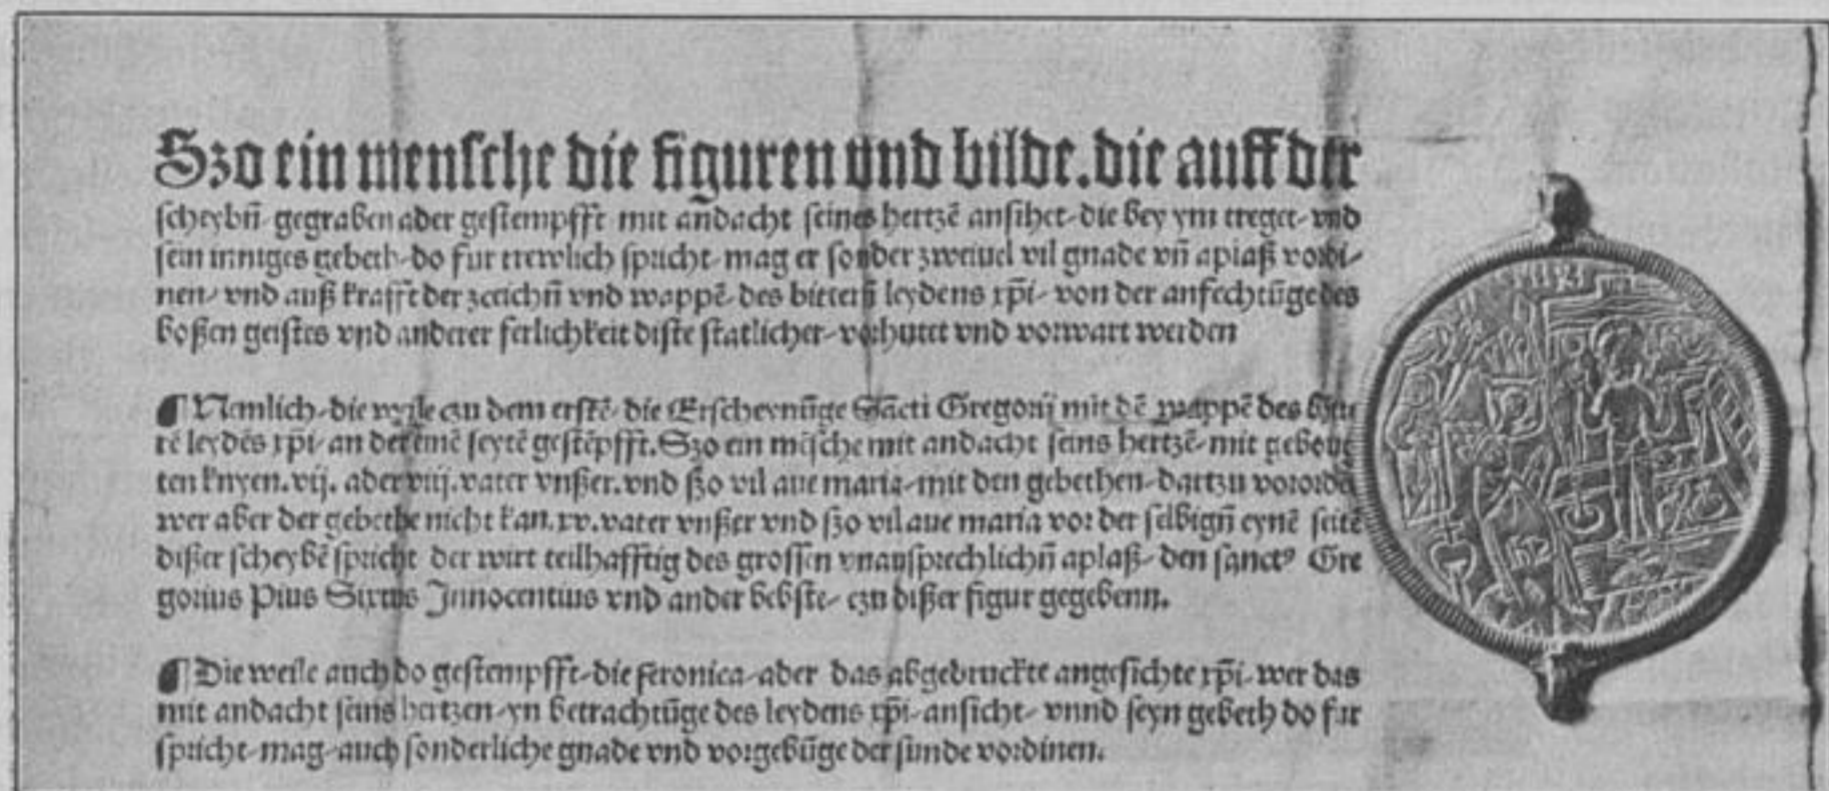 Szo ein mensche die figuren vnd bilde. die auff der
scheybn̄ gegraben ader gestempfft mit andacht seines hertzē ansihet die bey ym treget vnd
sein inniges gebeth do fur trewlich spricht mag er sonder zweiuel vil gnade vn̄ aplaß vordi-
nen vnd auß krafft der zeeichn̄ vnd wappē des bittern̄ leydens xp̄i von der anfechtūge des
boßen geistes vnd anderer ferlichkeit diste statlicher vorhutet vnd vorwart werden
¶ Nemlich die weyle czu dem erstē die Erscheynūge Sācti Gregorij mit dē wappē des bitte
rē leydēs xp̄i an der einē seytē gestēpfft. Szo ein mēsche mit andacht seins hertzē mit geboug
ten knyen. vij. ader viij. vater vnßer. vnd ßo vil aue maria mit den gebethen dartzu vorordē
wer aber der gebethe nicht kan. xv. vater vnßer vnd ßo vil aue maria vor der selbign̄ eynē seitē
dißer scheybē spricht der wirt teilhafftig des grossen vnaußprechlichn̄ aplaß den sanctꝰ Gre
gorius Pius Sixtus Innocentius vnd ander bebste czu dißer figur gegebenn.
¶ Die weile auch do gestempfft die feronica ader das abgedruckte angesichte xp̄i wer das
mit andacht seins hertzen yn betrachtūge des leydens xp̄i ansicht vnnd seyn gebeth do fur
spricht mag auch sonderliche gnade vnd vorgebūge der sunde vordinen.